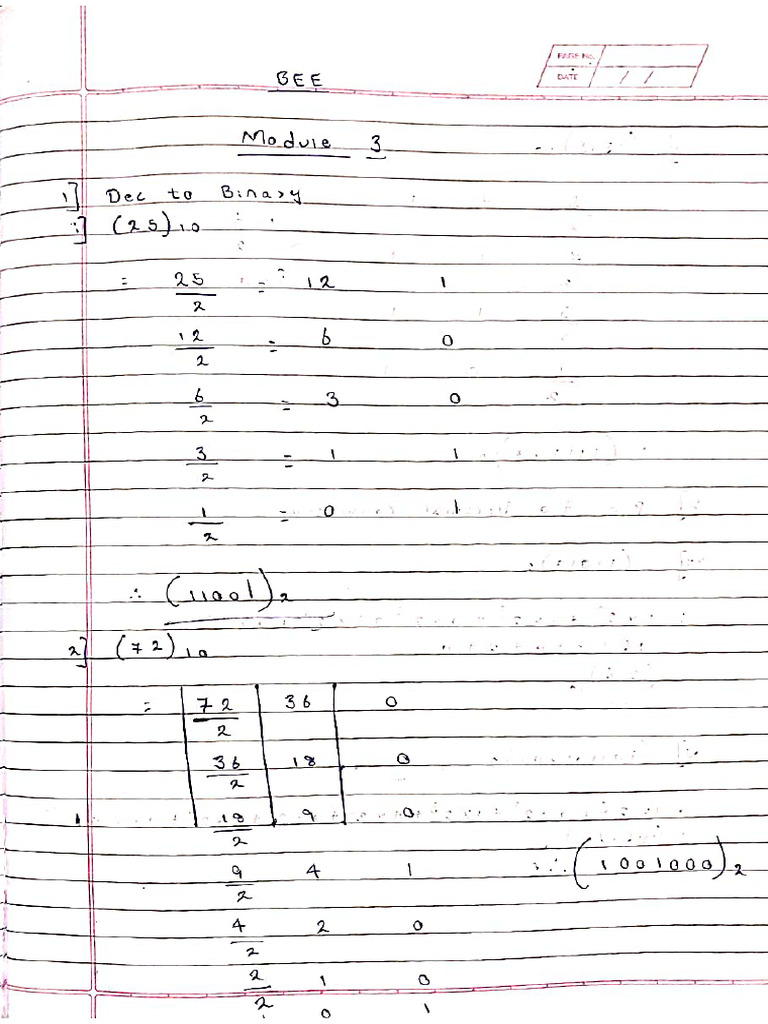 BEE
PAGE No.
DATE / /
Module 3
1] Dec to Binary
i] (25)10
= 25/2 = 12 1
12/2 = 6 0
6/2 = 3 0
3/2 = 1 1
1/2 = 0 1
∴ (11001)2
2] (72)10
= 72/2 36 0
36/2 18 0
18/2 9 0
9/2 4 1 ∴ (1001000)2
4/2 2 0
2/2 1 0
0 1